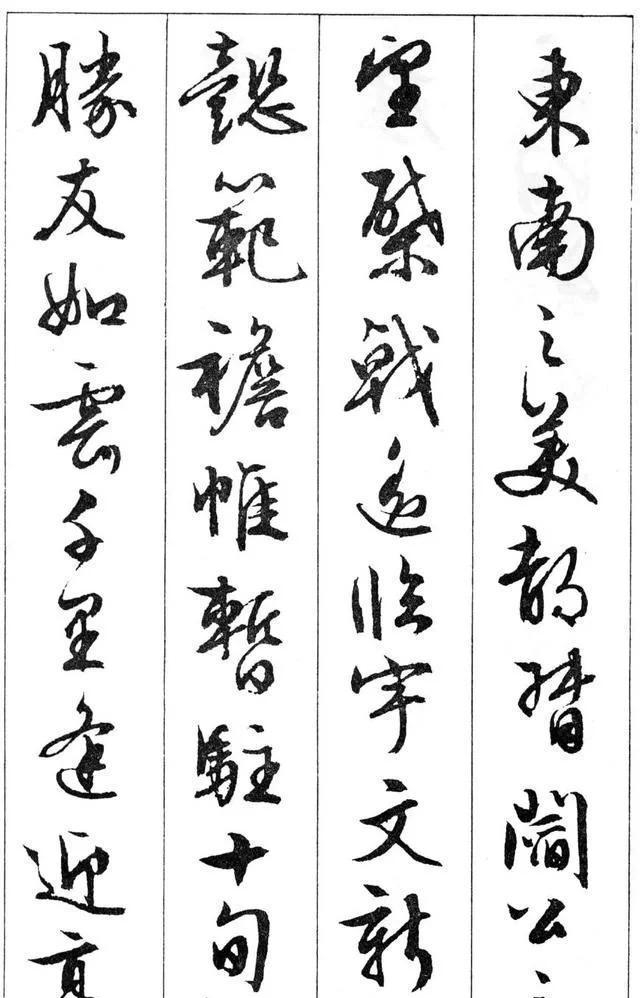 東南之美都督閻公
望棨戟遙臨宇文新
懿範襜帷暫駐十旬
勝友如雲千里逢迎高